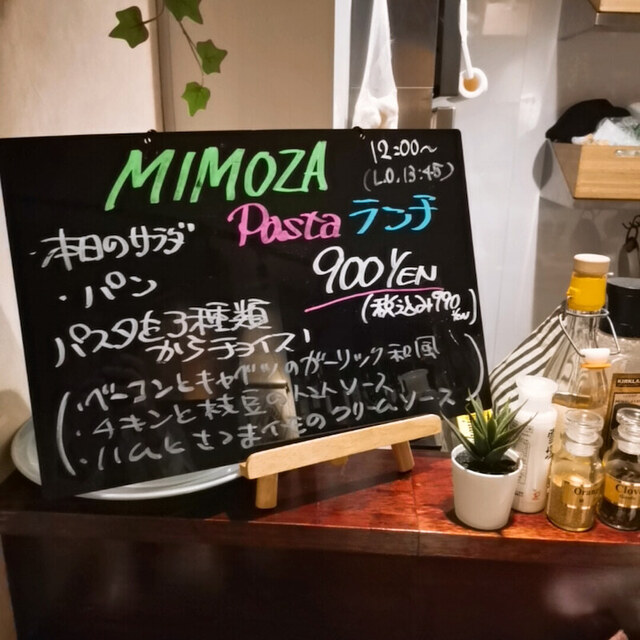 MIMOZA
12:00〜
(L.O. 13:45)
Pasta ランチ
・本日のサラダ
・パン
900YEN
(税込み990YEN)
パスタを3種類
からチョイス!
・ベーコンとキャベツのガーリック和風
・チキンと枝豆のトマトソース
・ハムとさつまいものクリームソース